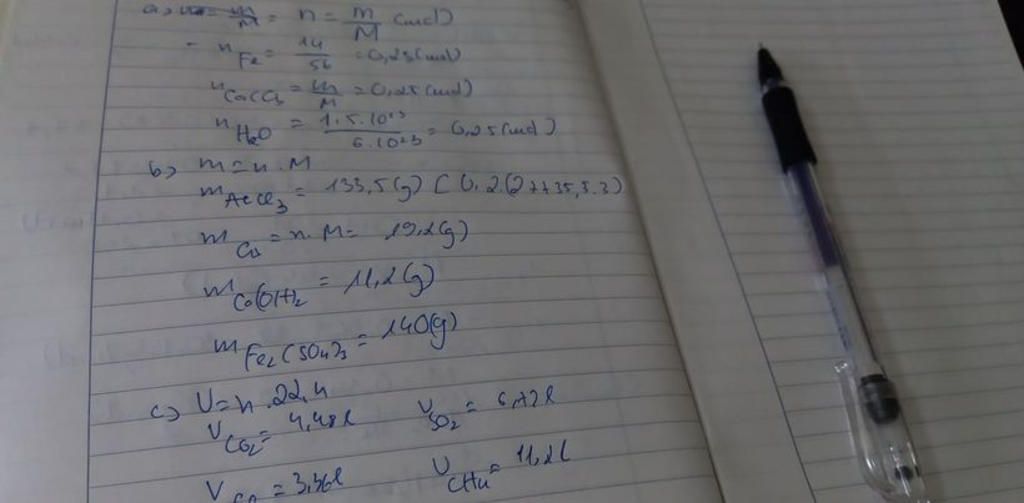 a) n = m/M (mol)
- nFe = 14/56 = 0,25 (mol)
nCaCO3 = m/M = 0,25 (mol)
nH2O = 1.5.10²³/6.10²³ = 0,25 (mol)
b) m = n.M
mAlCl3 = 133,5(g) (0,2.(27+35,5.3)
mCu = n.M = 19,2(g)
mCa(OH)2 = 11,2(g)
mFe2(SO4)3 = 140(g)
c) V = n.22,4
VCO2 = 4,48l VSO2 = 6,72l
VCO = 3,36l VCH4 = 11,2l